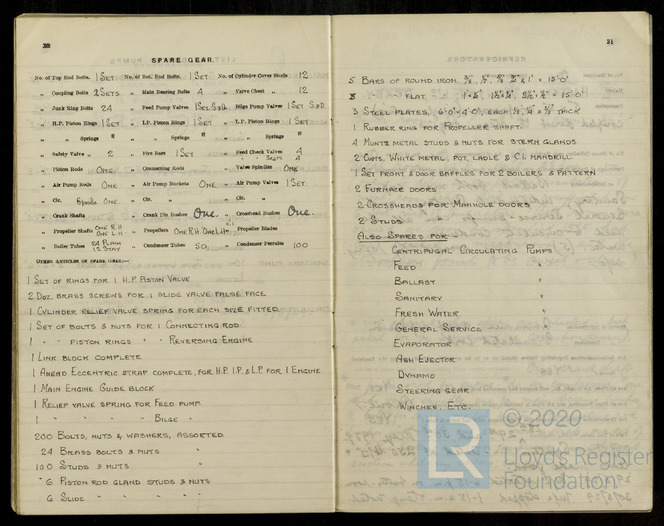 30
SPARE GEAR.
No. of Top End Bolts. 1 SET No. of Bot. End Bolts. 1 SET No. of Cylinder Cover Studs 12
„ Coupling Bolts 2 SETS „ Main Bearing Bolts 4 „ Valve Chest „ 12
„ Junk Ring Bolts 24 „ Feed Pump Valves 1 SET. S&D. „ Bilge Pump Valves 1 SET S&D.
„ H.P. Piston Rings 1 SET „ I.P. Piston Rings 1 SET „ L.P. Piston Rings 1 SET
„ „ Springs " „ „ Springs " „ „ Springs "
„ Safety Valve „ 2 „ Fire Bars 1 SET „ Feed Check Valves 4
SEATS 4
„ Piston Rods ONE „ Connecting Rods „ Valve Spindles ONE
„ Air Pump Rods ONE „ Air Pump Buckets ONE „ Air Pump Valves 1 SET
„ Cir. „ Spools ONE „ Cir. „ „ Cir. „
„ Crank Shafts „ Crank Pin Bushes One. „ Crosshead Bushes One.
„ Propeller Shafts ONE R.H ONE L.H „ Propellers ONE R.H ONE L.H „ Propeller Blades
„ Boiler Tubes 24 PLAIN 12 STAY „ Condenser Tubes 50 „ Condenser Ferrules 100
OTHER ARTICLES OF SPARE GEAR:—
1 SET OF RINGS FOR 1 H.P. PISTON VALVE
2 DOZ. BRASS SCREWS FOR 1 SLIDE VALVE FALSE FACE
1 CYLINDER RELIEF VALVE SPRING FOR EACH SIZE FITTED.
1 SET OF BOLTS & NUTS FOR 1 CONNECTING ROD
1 " " PISTON RINGS " " REVERSING ENGINE
1 LINK BLOCK COMPLETE
1 AHEAD ECCENTRIC STRAP COMPLETE, FOR H.P. I.P. & L.P. FOR 1 ENGINE
1 MAIN ENGINE GUIDE BLOCK
1 RELIEF VALVE SPRING FOR FEED PUMP.
1 " " " " BILGE "
200 BOLTS, NUTS & WASHERS, ASSORTED
24 BRASS BOLTS & NUTS "
100 STUDS & NUTS "
6 PISTON ROD GLAND STUDS & NUTS
6 SLIDE " " " "
31
5 BARS OF ROUND IRON, 3/8, 1/2, 5/8, 3/4 & 1" × 15'0"
3 " FLAT "
3 STEEL PLATES, 6'0" × 4'0", EACH
1 RUBBER RING FOR PROPELLER SHAFT
4 MUNTZ METAL STUDS & NUTS FOR STERN GLANDS
2 CWTS. WHITE METAL, POT, LADLE & C.I. MANDRILL
1 SET FRONT & DOOR BAFFLES FOR 2 BOILERS & PATTERN
2 FURNACE DOORS
2 CROSSHEADS FOR MANHOLE DOORS
2 STUDS " " "
ALSO SPARES FOR –
CENTRIFUGAL CIRCULATING PUMPS
FEED "
BALLAST "
SANITARY "
FRESH WATER "
GENERAL SERVICE "
EVAPORATOR "
ASH EJECTOR "
DYNAMO
STEERING GEAR
WINCHES, ETC.
© 2020
LR
Lloyd's Register
Foundation